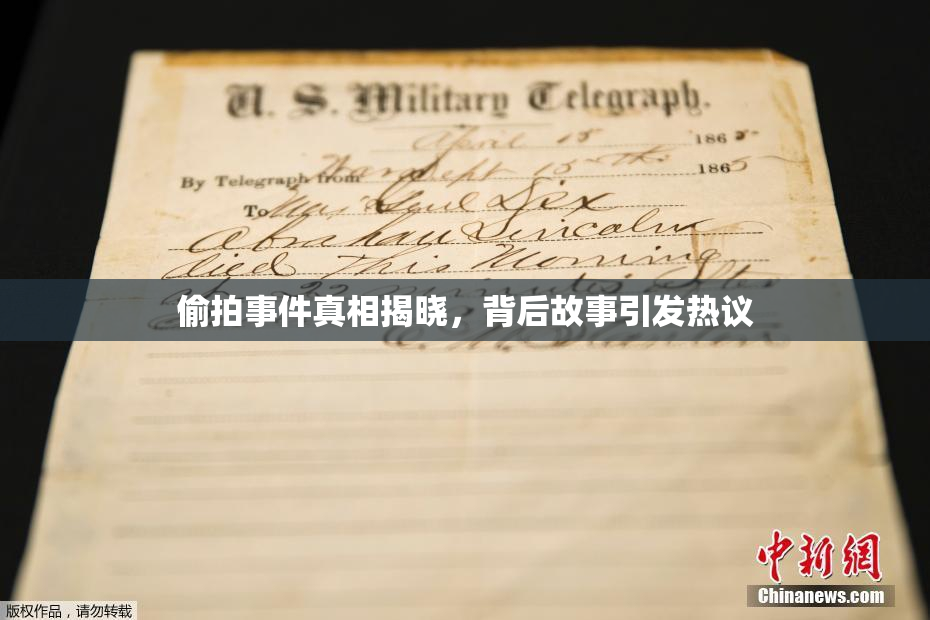 U. S. Military Telegraph.
April 15 1865
By Telegraph from War Dept 15th 1865
To Maj Genl Dix
Abraham Lincoln
died This Morning
at 22 minutes after
偷拍事件真相揭晓，背后故事引发热议
E. M. Stanton
中新网
Chinanews.com
版权作品，请勿转载